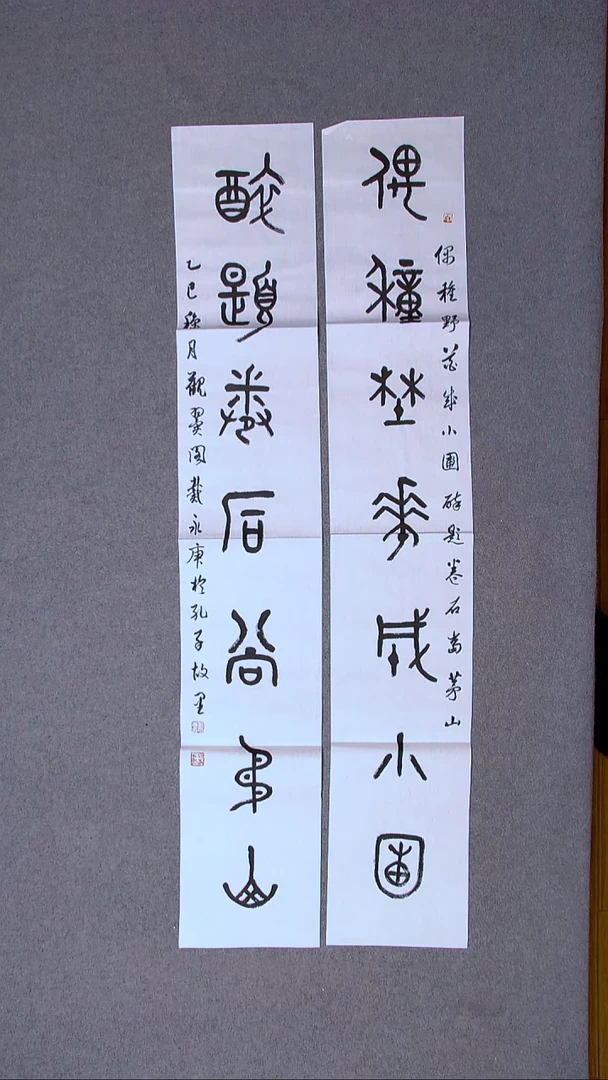 偶種野花成小圃
偶種野花成小圃醉題卷石尚茅山
醉題卷石尚茅山
乙巳月觀閣戴永庚於孔子故里